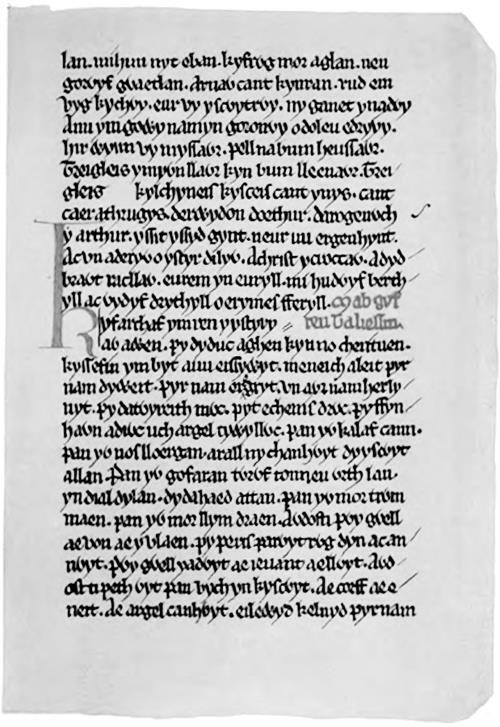 lan. mi hun nyt oban. kyfrwg mor aglan. neu
gorwyf gwaetlan. arnaw cant kynran. rud em
vyg kychwy. eur vy yscwytrwy. ny ganet yn adwy
Auu ym gowy namyn goronwy o doleu edrywy.
hir wynn vy myssawr. pell na bum heussawr.
Treigleis y mywn llawr kyn bum lleenawr. Trei
gleis kylchyneis kysceis cant ynys. cant
caer athrugys. derwydon doethur. darogenwch
y arthur. yssit yssyd gynt. neur uu ergenhynt.
Ac vn aderyw o ystyr dilyw. Achrist y croccaw. Adyd
brawt racllaw. eurem yn euryll. mi hudwyf berth
yll ac wydyf drythyll o erymes fferyll. Mabgyf
Kyfarchaf ym ren y ystyry reu taliessin.
aw awen. py dyduc aghen kyn no cherituen.
kyssefin ym byt auu eissywyt. meneich aleit pyr
nam dywett. pyr nam eisgyt. vn awr nam herly
nyt. py datwyreith mwc. pyt echenis drwc. py ffyn
hawn adiwc uch argel tywyllwc. pan yw kalaf cann.
pan yw nos lloergan. arall ny chanhwyt dyyscwyt
allan. Pan yw gofaran twrwf tonneu wrth lan.
yn dial dylan. dydahaed attan. pan yw mor trwm
maen. pan yw mor llym draen. Awdosti pwy gwell
ae von ae y vlaen. py peris parwyt rwg dyn ac an
nwyt. pwy gwell y adwyt ae ieuanc ae llwyt. Awd
osti peth wyt pan vych yn kyscwyt. Ae corff ae e
neit. Ae argel canhwyt. eilewyd keluyd pyr nam